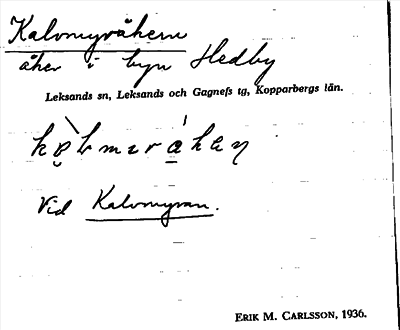 Kalvmyråkern
åker i byn Hedby
Leksands sn, Leksands och Gagnefs tg, Kopparbergs län.
Vid Kalvmyran.
ERIK M. CARLSSON, 1936.